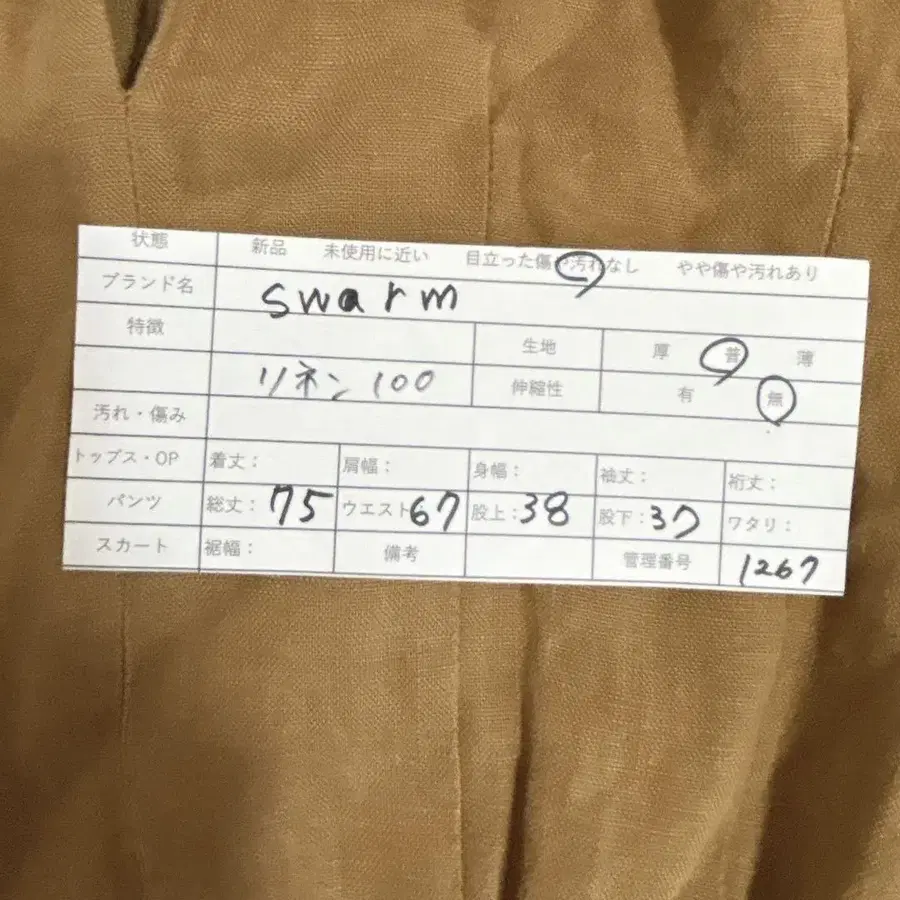 状態 新品 未使用に近い 目立った傷や汚れなし やや傷や汚れあり
ブランド名 swarm
特徴 生地 厚 普 薄
リネン100 伸縮性 有 無
汚れ・傷み
トップス・OP 着丈: 肩幅: 身幅: 袖丈: 裄丈:
パンツ 総丈:75 ウエスト67 股上:38 股下:37 ワタリ:
スカート 裾幅: 備考 管理番号 1267